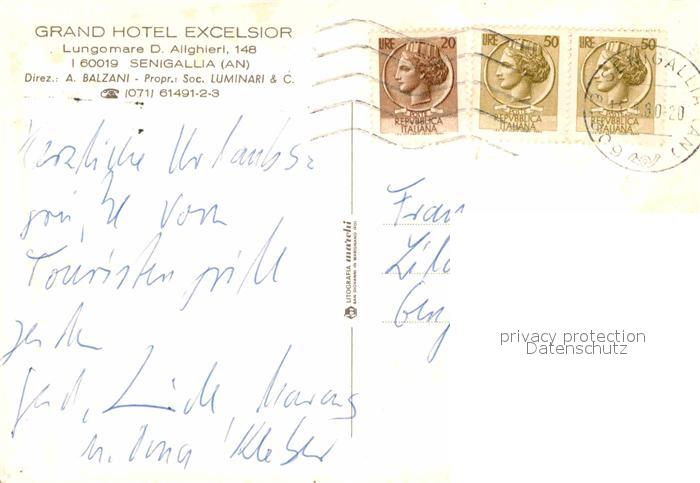 GRAND HOTEL EXCELSIOR
Lungomare D. Alighieri, 148
I 60019 SENIGALLIA (AN)
Direz.: A. BALZANI - Propr.: Soc. LUMINARI & C.
☎ (071) 61491-2-3
LIRE 20
POSTE
REPVBBLICA
ITALIANA
LIRE 50
POSTE
REPVBBLICA
ITALIANA
LIRE 50
REPVBBLICA
ITALIANA
SENIGALLIA
80-20
(AN)
Herzliche Urlaubs=
grüße vom
Touristen
Gerd, Linde,
u. Kleber
LITOGRAFIA marchi
SAN GIOVANNI IN MARIGNANO (FO)
Fran
privacy protection
Datenschutz